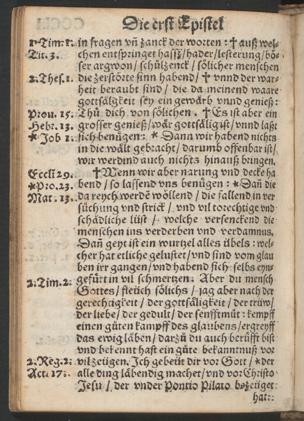 Die erst Epistel
1. Tim. 1. in fragen vñ zanck der worten: † auß wel-
Tit. 3. chen entspringet hassz/ hader/ lesterung/ bö-
ser argwon/ schůlzanck/ sölicher menschen
2. Thes. 1. die zerstörte sinn habend/ † vnnd der war-
heit beraubt sind/ die da meinend waare
gottsäligkeit sey ein gewärb vnnd genieß:
Prou. 15. Thů dich von sölichen. † Es ist aber ein
Hebr. 13. grosser genieß/ wär gottsälig ist/ vnd laßt
* Job 1. sich benůgen: * Dann wir habend nichts
in die wält gebracht/ darumb offenbar ist/
wir werdind auch nichts hinauß bringen.
Eccli 29. † Wenn wir aber narung vnd decke ha-
* Pro. 23. bend/ so lassend vns benůgen: * Dañ die
Mat. 13. da reych werdē wöllend/ die fallend in ver
sůchung vnd strick/ vnd vil torechtige vnd
schädliche lüst/ welche versenckend die
menschen ins verderben vnd verdamnus.
Dañ geyt ist ein wurtzel alles übels: wel-
cher hat etliche gelustet/ vnd sind vom glau
ben irr gangen/ vnd habend sich selbs eyn-
gefürt in vil schmertzen. Aber du mensch
2. Tim. 2. Gottes/ fleüch sölichs/ jag aber nach der
gerechtigkeit/ der gottsäligkeit/ der trüw/
der liebe/ der gedult/ der senfftmůt: kempff
einen gůten kampff des glaubens/ ergreyff
das ewig läben/ darzů du auch berüfft bist
vnd bekennt hast ein gůte bekanntnuß vor
2. Reg. 2. vil zeügen. Ich gebeüt dir vor Gott/ * der
Act. 17. alle ding läbendig machet/ vnd vor Christo
Jesu/ der vnder Pontio Pilato bezeüget
hat: